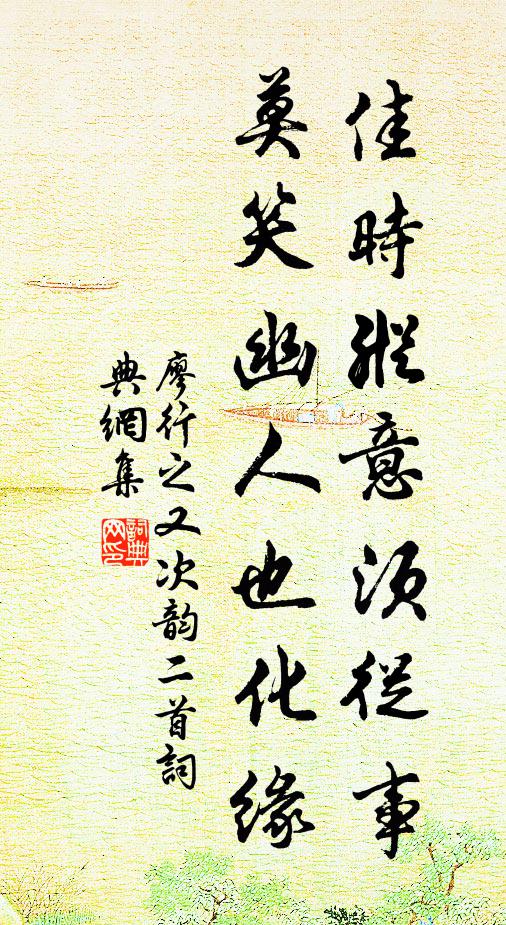 佳時縱意須從事
莫笑幽人也化緣
廖行之又次韵二首詞
典網集
詞典網印